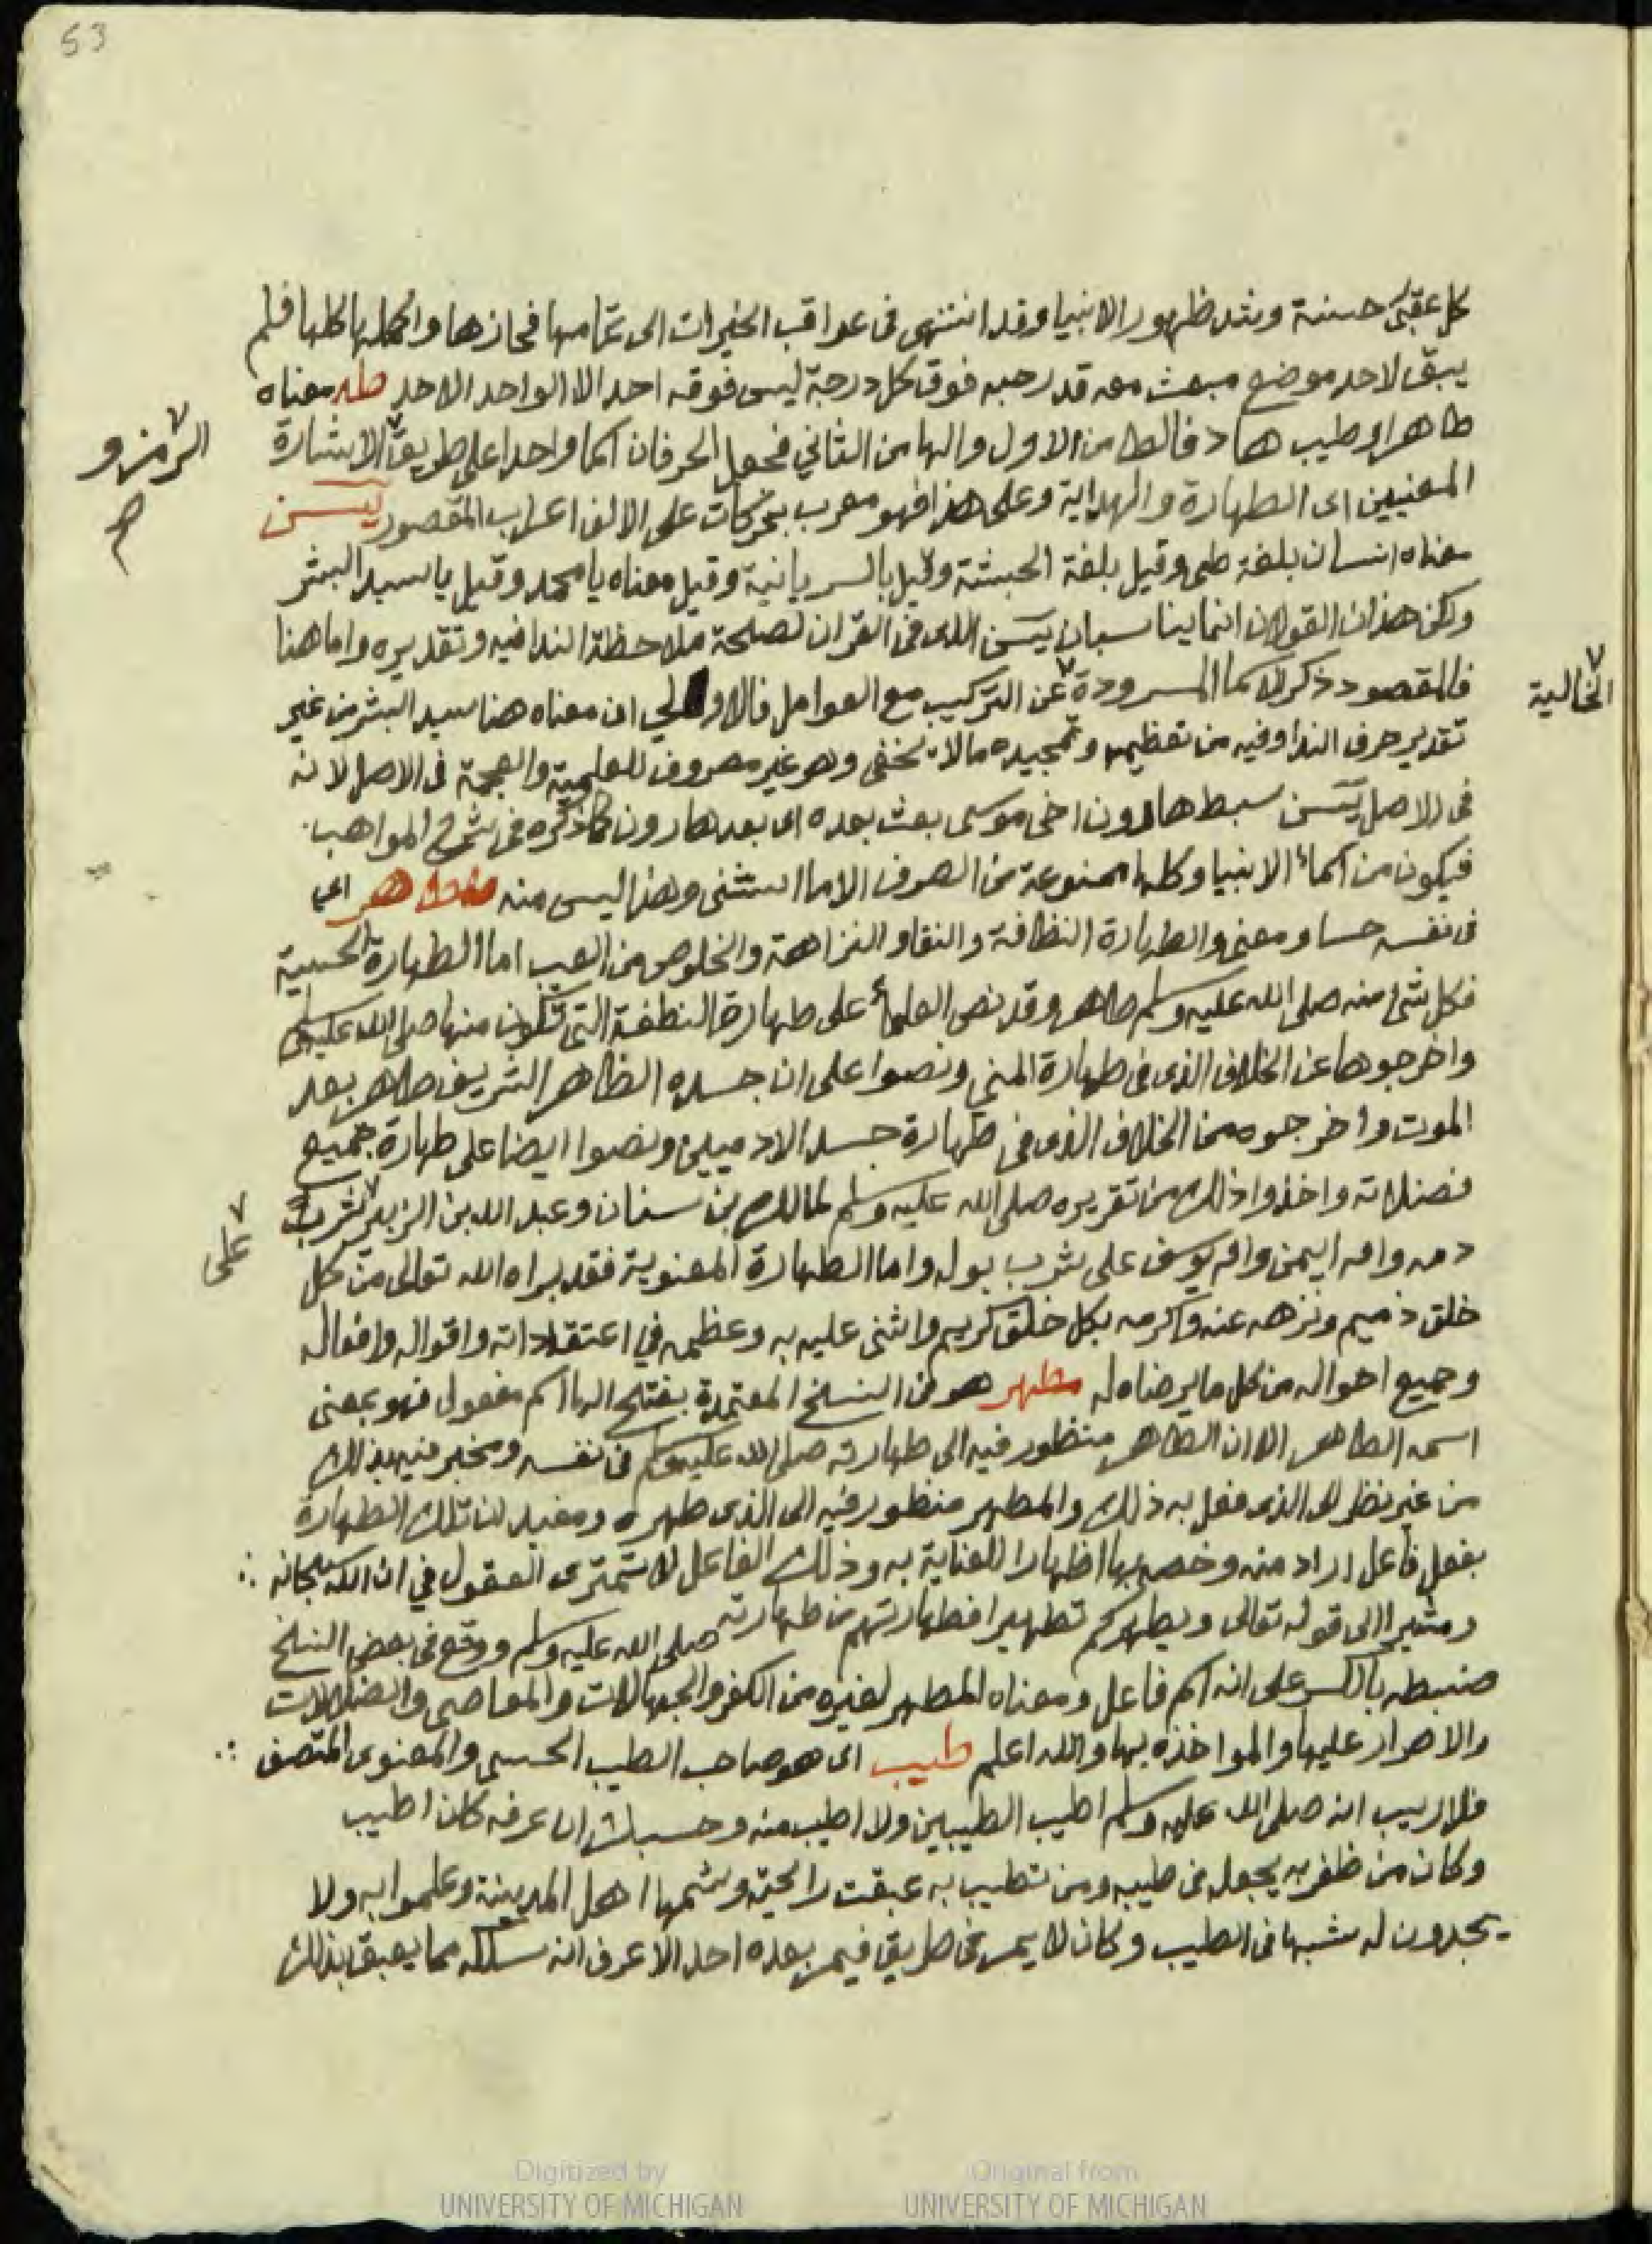 53
كل عقبى حسنة ومثد ظهور الانبيا وقد انتهى فى عواقب الخيرات الى تمامها فحازها واكملها كلها فلم
يبق لاحد موضع مبعث معه قد رحبه فوق كل درجة ليس فوقه احد الا الواحد الاحد طه معناه
طاهر او طيب هاد فالطا من الاول والها من الثاني فجعل الحرفان اسما واحدا على طريقة الاشارة
الرمز و
صح
المعنيين اى الطهارة والهداية وعلى هذا فهو معرب بحركات على الالف اعراب المقصور يٓس
معناه انسان بلغة طى وقيل بلغة الحبشة وقيل بالسريانية وقيل معناه يا محمد وقيل يا سيد البشر
ولكن هذان القولان انما يناسبان يس الذى فى القران لصلحة ملاحظة الندا فيه وتقديره واما هنا
فالمقصود ذكر الاسما المسرودة عن التركيب مع العوامل فالاولى ان معناه هنا سيد البشر من غير
الخالية
تقدير حرف الندا وفيه من تعظيمه وتمجيده ما لا يخفى وهو غير مصروف للعلمية والعجمة فى الاصل لانه
فى الاصل يس سبط هارون اخى موسى بعث بعده اى بعد هارون كما ذكره فى شرح المواهب
فيكون من اسمأ الانبيا وكلها ممنوعة من الصرف الا ما استثنى وهذا ليس منه طاهر اى
فى نفسه حسا ومعنى والطهارة النظافة والنقا والنزاهة والخلوص من العيب اما الطهارة الحسية
فكل شئ منه صلى الله عليه وسلم طاهر وقد نص العلمأ على طهارة النطفة التى تكون منها صلى الله عليه وسلم
واخرجوها عن الخلاف الذى فى طهارة المنى ونصوا على ان جسده الظاهر الشريف طاهر بعد
الموت واخرجوه من الخلاف الذى فى طهارة جسد الادميين ونصوا ايضا على طهارة جميع
فضلاته واخذوا ذلك من تقريره صلى الله عليه وسلم لمالك بن سنان وعبد الله بن الزبير شرب
على
دمه وام ايمن وام يوسف على شرب بوله واما الطهارة المعنوية فقد براه الله تعالى من كل
خلق ذميم ونزهه عنه واكرمه بكل خلق كريم واثنى عليه به وعظمه في اعتقاداته واقواله وافعاله
وجميع احواله من كل ما يرضاه له مطهر هو فى النسخ المعتمدة بفتح الها اسم مفعول فهو بمعنى
اسمه الطاهر الا ان الطاهر منظور فيه الى طهارته صلى الله عليه وسلم فى نفسه ومخبر فيه بذلك
من غير نظر الى الذى فعل به ذلك والمطهر منظور فيه الى الذى طهره ومفيد ان تلك الطهارة
بفعل فاعل اراد منه وخصه بها اظهارا للعناية به وذلك الفاعل لا تمترى العقول في ان الله سبحانه
ومشيرا الى قوله تعالى ويطهركم تطهيرا فطهارتهم من طهارته صلى الله عليه وسلم ووقع فى بعض النسخ
ضبطه بالكسر على انه اسم فاعل ومعناه المطهر لغيره من الكفر والجهالات والمعاصى والضلالات
والاصرار عليها والمواخذة بها والله اعلم طيب اى هو صاحب الطيب الحسى والمعنوى المتصف
فلا ريب انه صلى الله عليه وسلم اطيب الطيبين ولا اطيب منه وحسبك ان عرفه كان اطيب
وكان من ظفر به يجعله فى طيبه ومن تطيب به عبقت رائحته وشمها اهل المدينة وعلموا به ولا
يجدون له شبها فى الطيب وكان لا يمر فى طريق فيمر بعده احد الا عرف انه سلكه مما يعبق بذلك
Digitized by
UNIVERSITY OF MICHIGAN
Original from
UNIVERSITY OF MICHIGAN